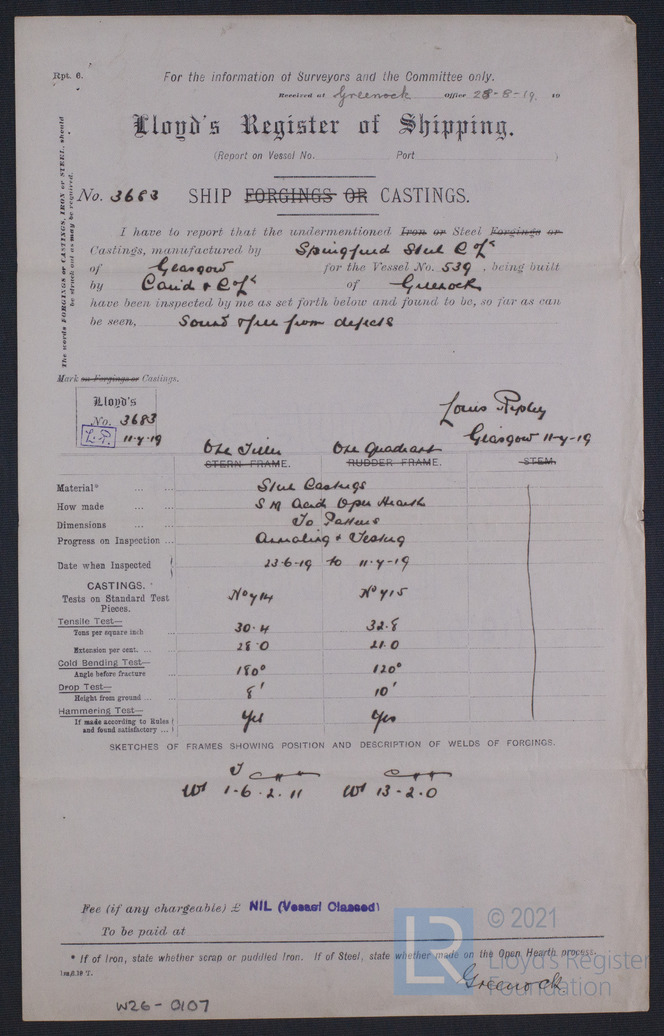 Rpt. 6.
For the information of Surveyors and the Committee only.
Received at Greenock Office 28-8-19. 19
Lloyd's Register of Shipping.
(Report on Vessel No. Port )
The words FORGINGS or CASTINGS, IRON or STEEL, should be struck out as may be required.
No. 3683 SHIP FORGINGS OR CASTINGS.
I have to report that the undermentioned Iron or Steel Forgings or
Castings, manufactured by Springfield Steel Co Ld
of Glasgow for the Vessel No. 539 , being built
by Caird & Co Ld of Greenock
have been inspected by me as set forth below and found to be, so far as can
be seen, Sound & free from defects
Mark on Forgings or Castings.
Lloyd's
No. 3683
L.R. 11-7-19
Louis Ripley
Glasgow 11-7-19
One Tiller One Quadrant
STERN FRAME. RUDDER FRAME. STEM.
Material* Steel Castings
How made S M Acid Open Hearth
Dimensions To Patterns
Progress on Inspection Annealing & Testing
Date when Inspected 23-6-19 to 11-7-19
CASTINGS.
Tests on Standard Test Pieces. No 714 No 715
Tensile Test—
Tons per square inch 30.4 32.8
Extension per cent. 28.0 21.0
Cold Bending Test—
Angle before fracture 180° 120°
Drop Test—
Height from ground 8' 10'
Hammering Test—
If made according to Rules and found satisfactory Yes Yes
SKETCHES OF FRAMES SHOWING POSITION AND DESCRIPTION OF WELDS OF FORGINGS.
T C H H C H H
Wt 1-6-2-11 Wt 13-2-0
Fee (if any chargeable) £ NIL (Vessel Classed)
To be paid at
* If of Iron, state whether scrap or puddled Iron. If of Steel, state whether made on the Open Hearth process.
Greenock
W26-0107
LR
© 2021
Lloyd's Register
Foundation